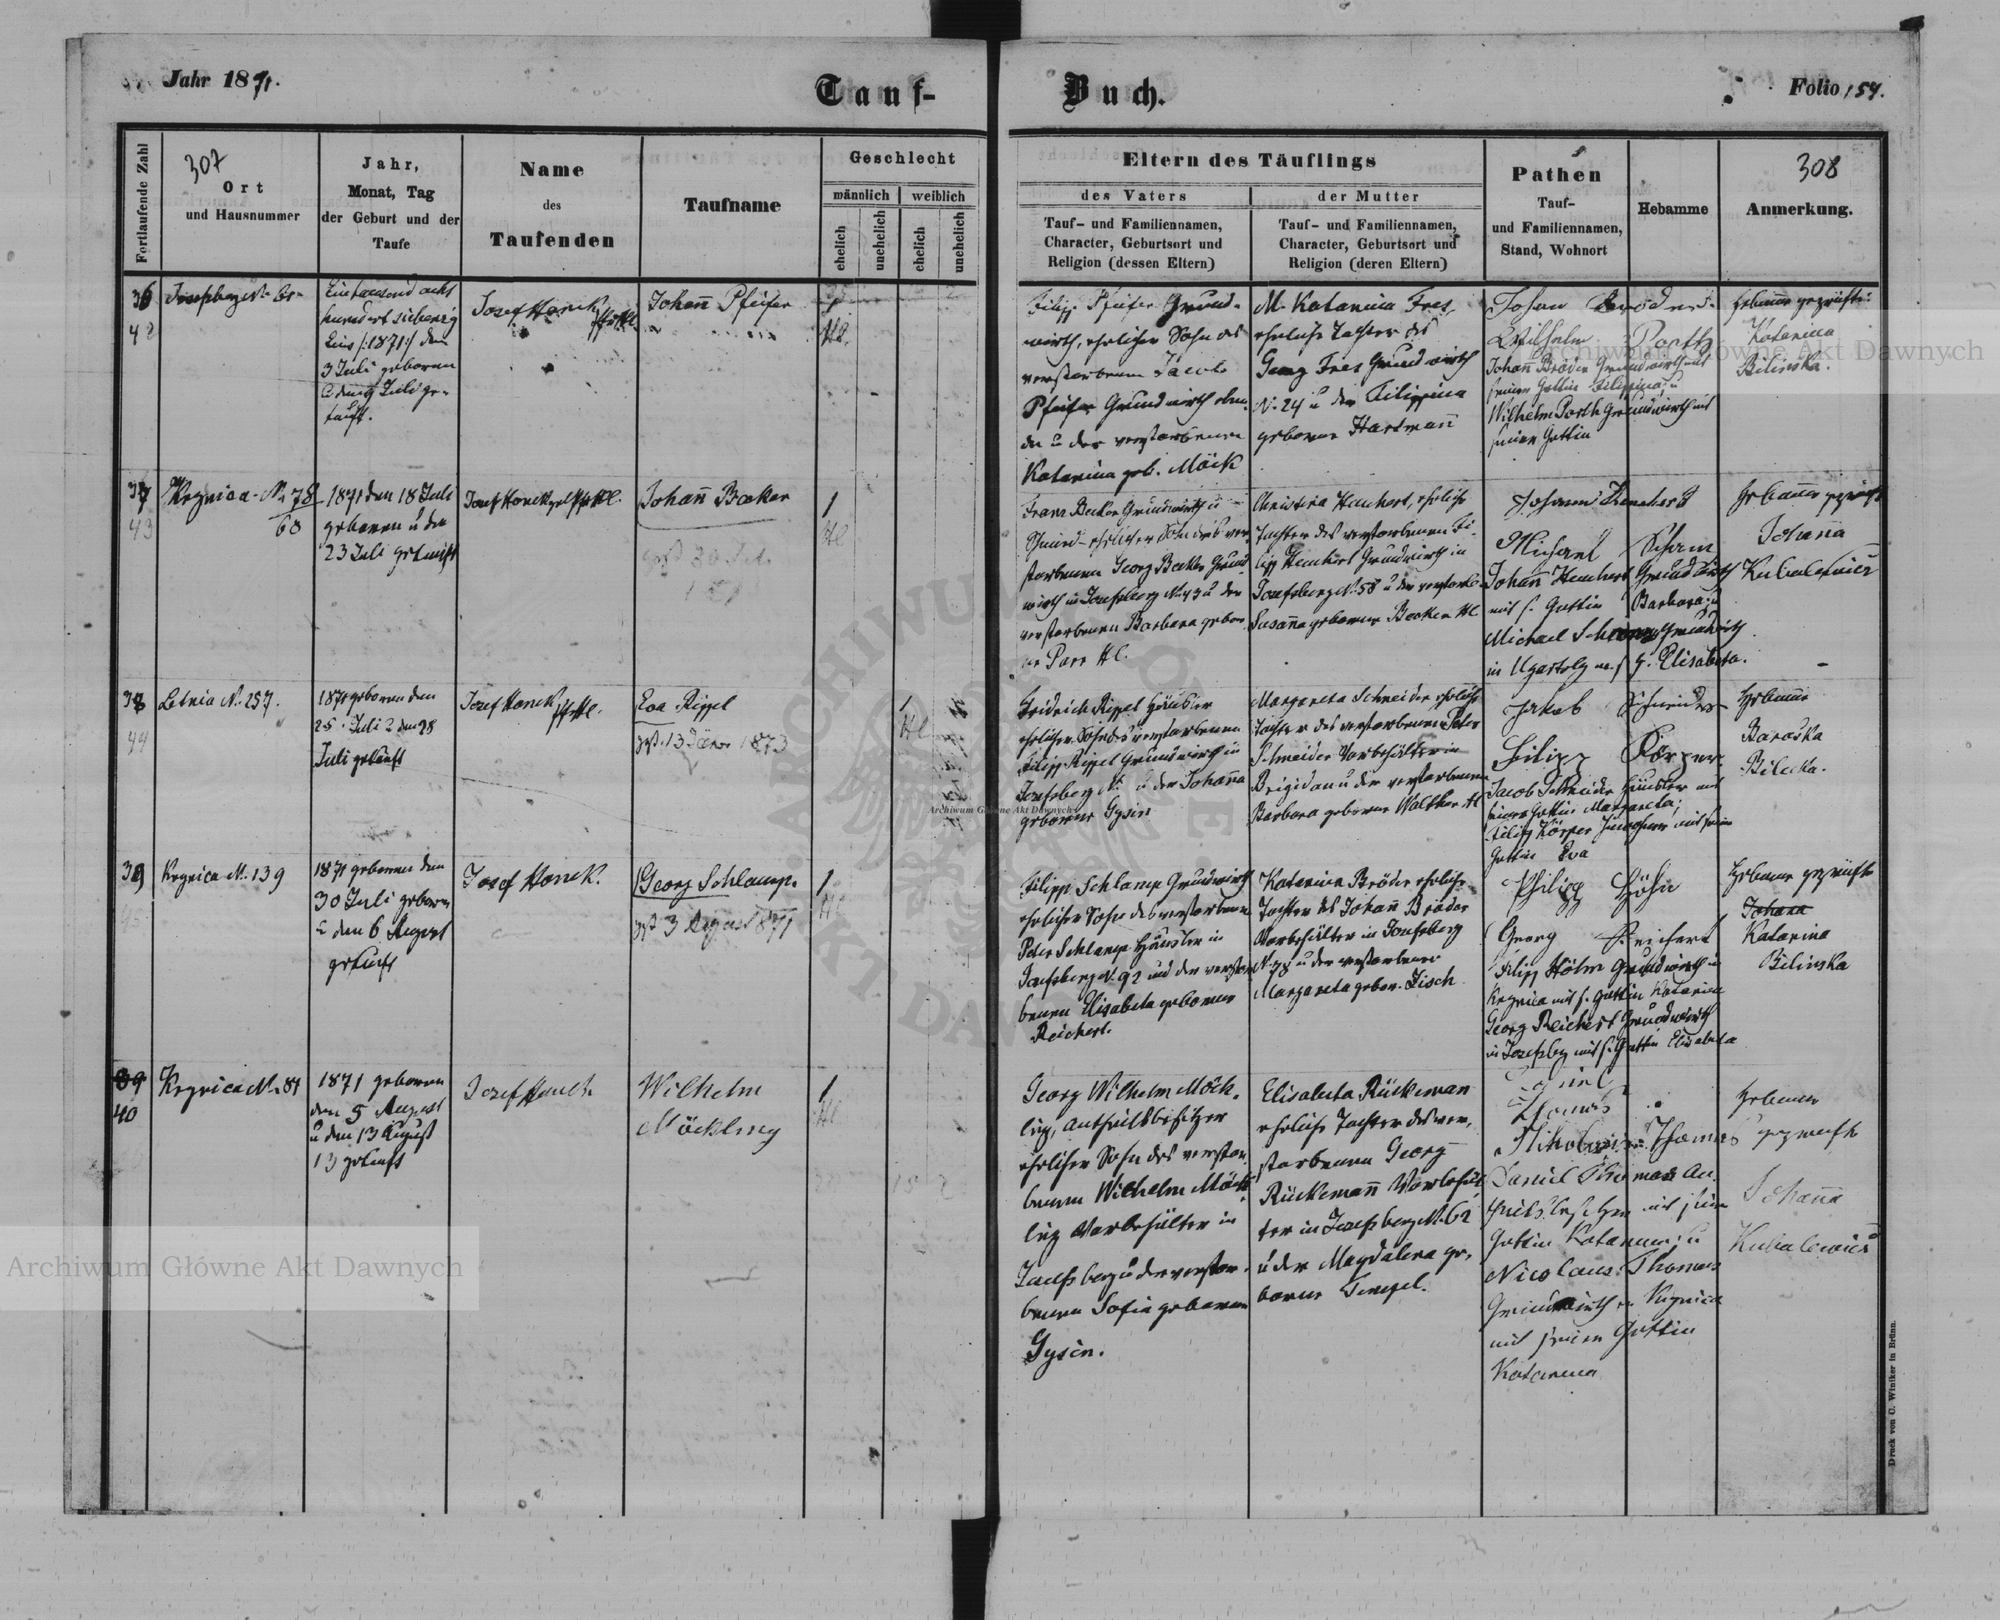 Jahr 1871.
Tauf-
Buch.
Folio 154.
Fortlaufende Zahl
307
Ort
und Hausnummer
Jahr,
Monat, Tag
der Geburt und der
Taufe
Name
des
Taufenden
Taufname
Geschlecht
männlich
weiblich
ehelich
unehelich
ehelich
unehelich
Eltern des Täuflings
des Vaters
der Mutter
Tauf- und Familiennamen,
Character, Geburtsort und
Religion (dessen Eltern)
Tauf- und Familiennamen,
Character, Geburtsort und
Religion (deren Eltern)
Pathen
Tauf-
und Familiennamen,
Stand, Wohnort
Hebamme
308
Anmerkung.
36
42
Eintausend acht
hundert siebenzig
Eins /:1871:/ den
3 Juli geboren
9 Juli ge-
tauft.
Josef Honek
Johann Pfeifer
1
Hl.
Filipp Pfeifer Grund-
wirth, ehelicher Sohn des
verstorbenen Jacob
Pfeifer Grundwirth
u der verstorbenen
Katarina geb. Möck
M. Katarina Fres,
eheliche Tochter des
Georg Fres Grundwirth
N. 24 u der Filippina
geborene Hartmann
Johan Bröder
Wilhelm Porth
Johann Bröder Grundwirth mit
seiner Gattin Filippina u
Wilhelm Porth Grundwirth mit
seiner Gattin
Hebamme geprüfte
Katarina
Bilinska.
37
43
Krynica N. 78
68
1871 den 18 Juli
geboren u den
23 Juli getauft
Josef Honek
Johann Becker
1
Hl
Franz Becker Grundwirth u
Schmied ehelicher Sohn des ver-
storbenen Georg Becker Grund
wirth in Josefsberg N. 43 u der
verstorbenen Barbara gebor
ne Parr Hl.
Christina Heuchert, eheliche
Tochter des verstorbenen Fi-
lipp Heuchert Grundwirth in
Josefsberg N. 58 u der verstorb
Susanna geborene Becker Hl
Johann Heuchert
Michael Schom
Johann Heuchert Grundwirth
mit s. Gattin Barbara u
Michael Grundwirth
in Ugartsberg m. s G. Elisabeta.
Hebamme geprüft
Johanna
Kubalewicz
38
44
Letnia N. 257.
1871 geboren den
25 Juli u den 28
Juli getauft
Josef Honek
Eva Rippel
gest. 13 Jäner 1873
1
Hl
Fridrich Rippel Häusler
ehelicher Sohn des verstorbenen
Filipp Rippel Grundwirth in
Josefsberg N. u der Johanna
geborene Gysin
Margareta Schneider eheliche
Tochter des verstorbenen Peter
Schneider Vorbehälter in
Brigidau u der verstorbenen
Barbara geborene Walther Hl
Jakob Schneider
Filipp Körper
Jacob Schneider Häusler mit
seiner Gattin Margareta;
Filipp Körper mit seiner
Gattin Eva
Hebamme
Baraska
Bilecka.
39
45
Krynica N. 139
1871 geboren den
30 Juli geboren
u den 6 August
getauft
Josef Honek.
Georg Schlamp.
gest 3 August 871
1
Hl
Filipp Schlamp Grundwirth
ehelicher Sohn des verstorbenen
Peter Schlamp Häusler in
Josefsberg N. 92 und der verstor
benen Elisabeta geborene
Reichert.
Katarina Bröder eheliche
Tochter des Johann Bröder
Vorbehälter in Josefsberg
N. 78 u der verstorbenen
Margareta gebor. Fisch
Philipp Höhn
Georg Reichert
Filipp Höhn Grundwirth in
Krynica mit s. Gattin Katarina
Georg Reichert Grundwirth
in Josefsberg mit s. Gattin Elisabeta
Hebamme geprüfte
Johana
Katarina
Bilinska
39
40
Krynica N. 81
1871 geboren
den 5 August
u den 13 August
13 getauft
Josef Honek
Wilhelm
Möckling
1
Hl
Georg Wilhelm Möck-
ling, Antheilsbesitzer
ehelicher Sohn des verstor
benen Wilhelm Möck
ling Vorbehälter in
Josefsberg u der verstor-
benen Sofia geborenen
Gysin.
Elisabeta Rückeman
eheliche Tochter des ver-
storbenen Georg
Rückemann Vorbehäl
ter in Josefsberg N. 62
u der Magdalena ge-
borene Tempel.
Daniel
Thomas
Nikolaus Thomas
Daniel Thomas An-
theilsbesitzer mit seiner
Gattin Katarina; u
Nicolaus Thomas
Grundwirth in Krynica
mit seiner Gattin
Katarina
Hebamme
geprüfte
Johanna
Kubalewicz
Druck von C. Winiker in Brünn.
Archiwum Główne Akt Dawnych
Archiwum Główne Akt Dawnych
Archiwum Główne Akt Dawnych